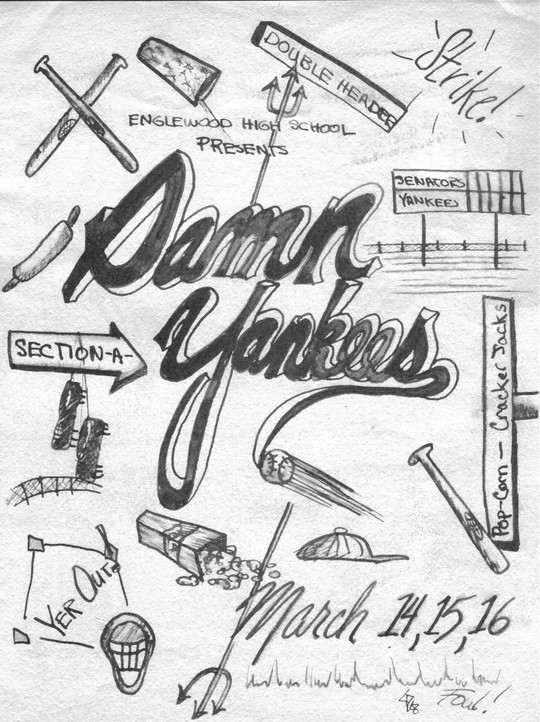 DOUBLE HEADER
Strike!
ENGLEWOOD HIGH SCHOOL
PRESENTS
SENATORS
YANKEES
Damn
Yankees
SECTION-A-
Pop-Corn — Cracker Jacks
YER OUT!
March 14, 15, 16
Foul!